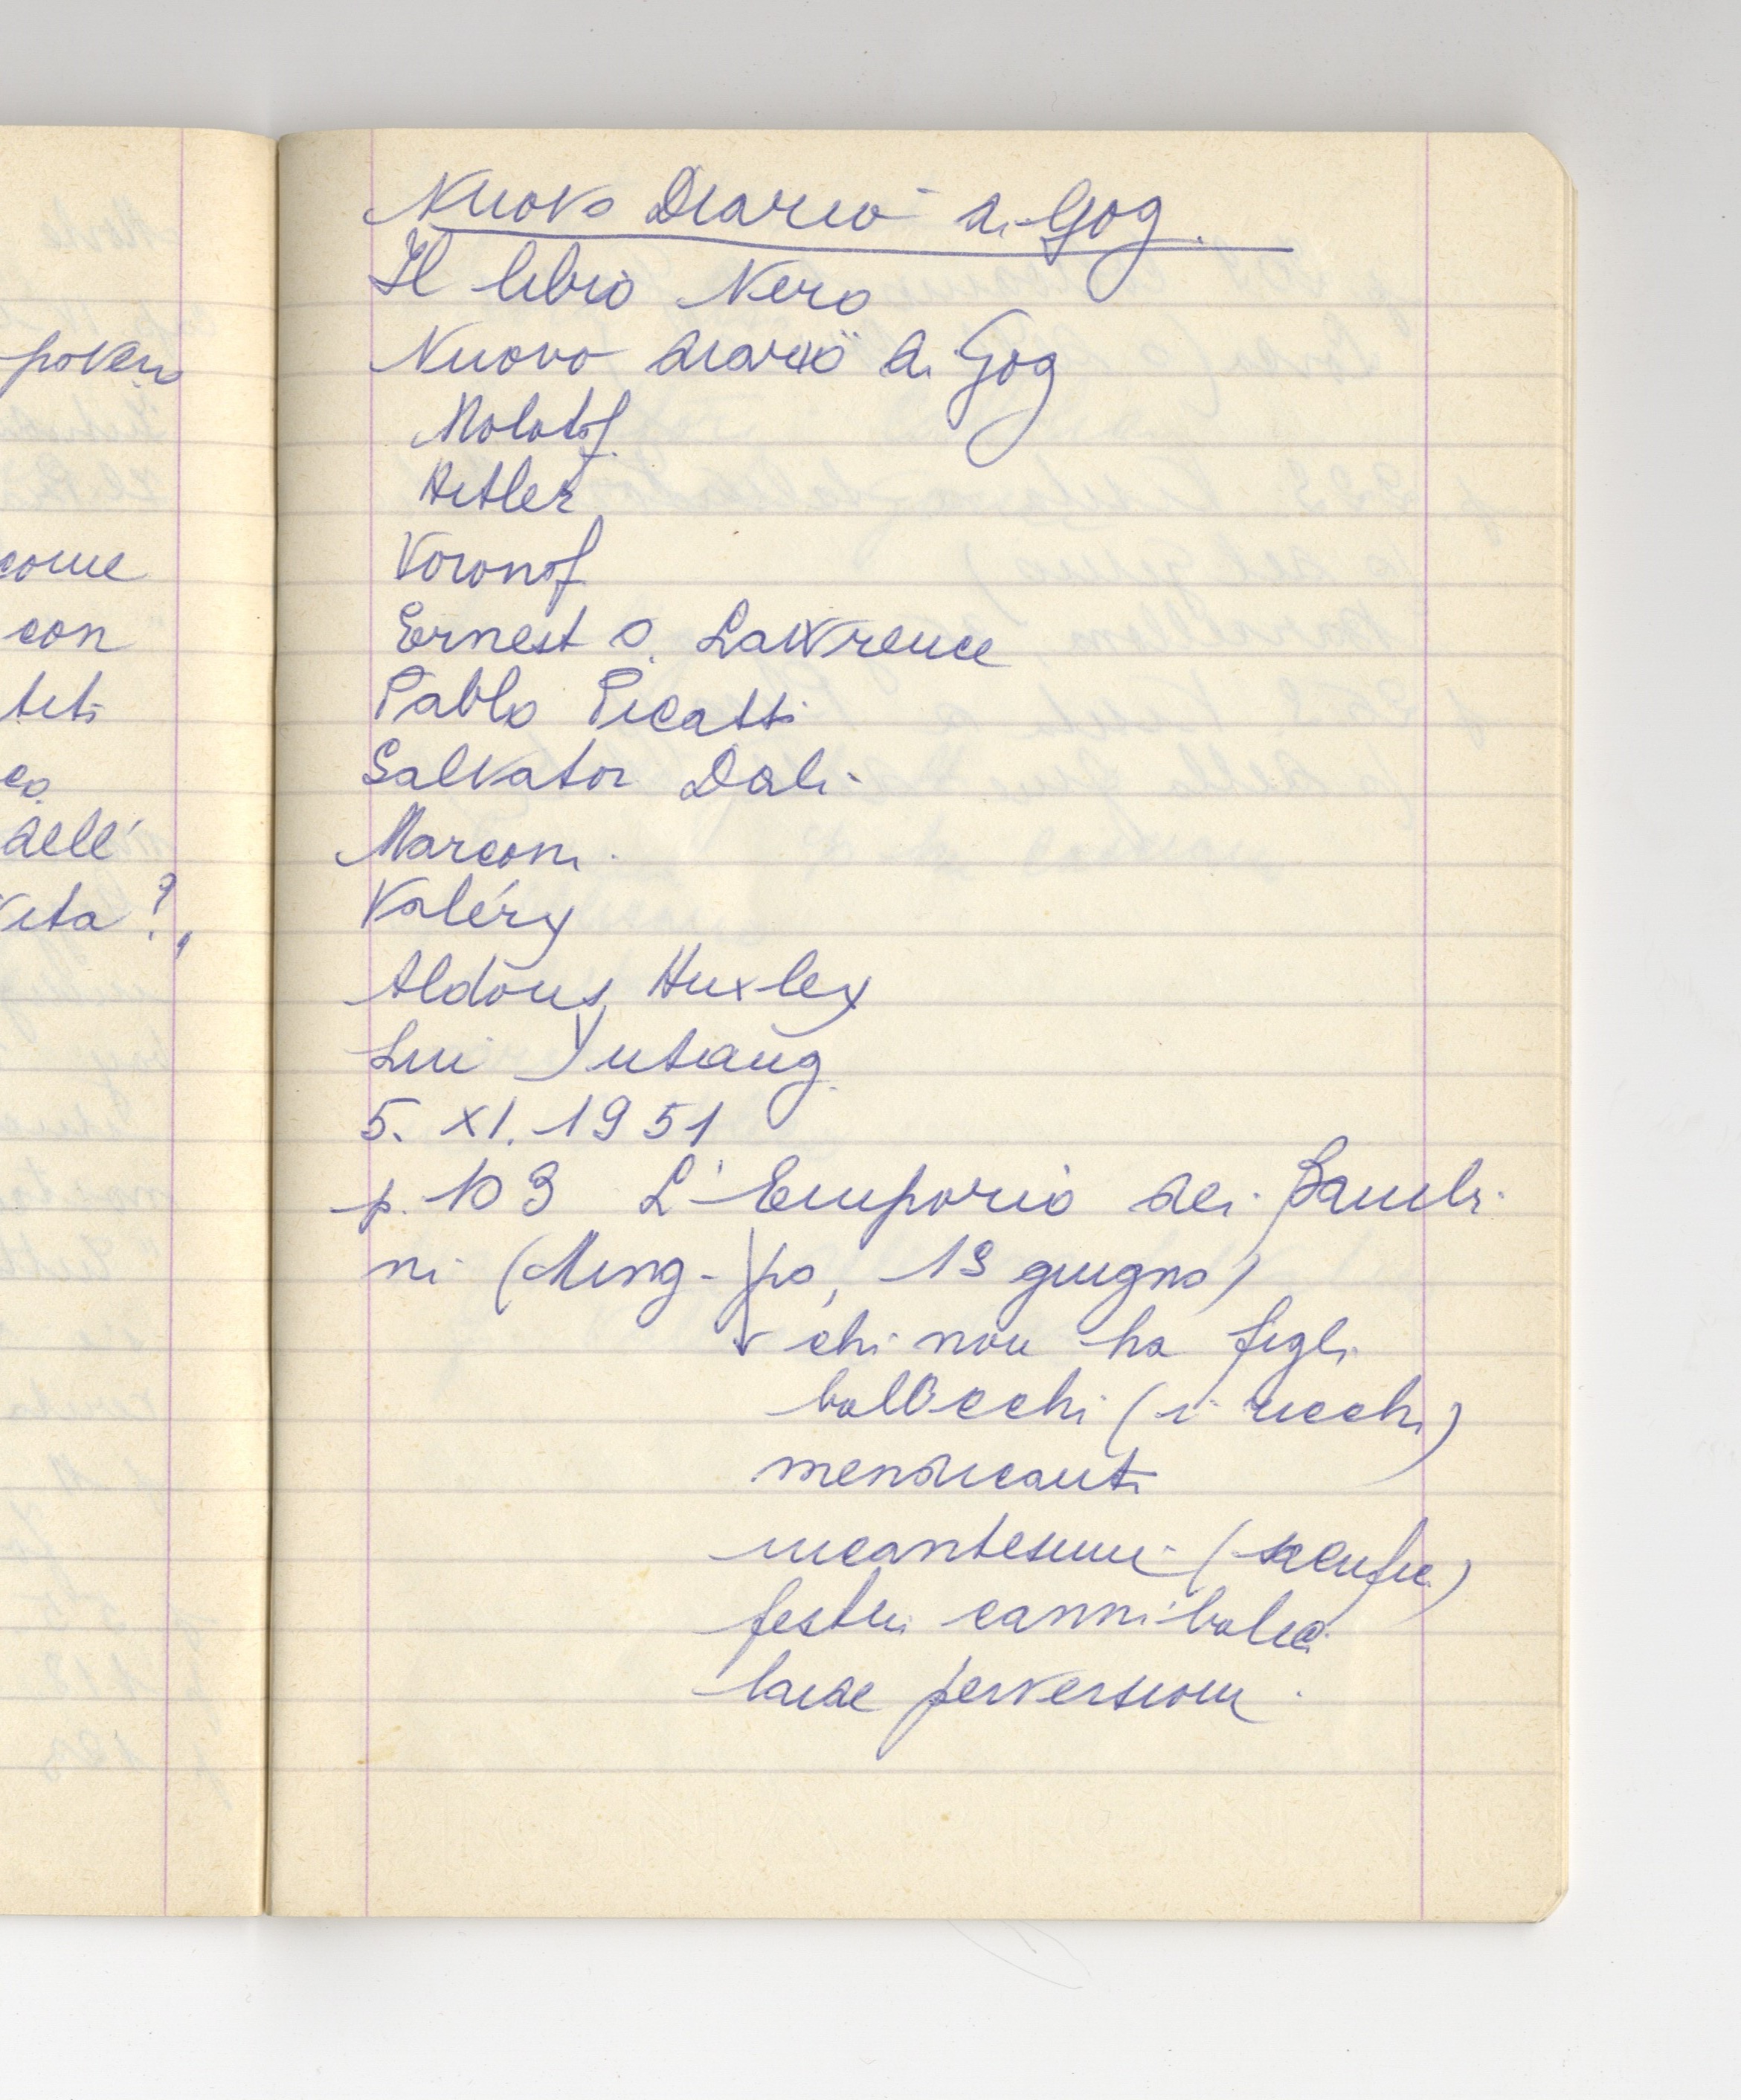 poven
come
con
teti
co
dell'
vita?,
Nuovo Diario di Gog.
Il libro Nero
Nuovo diario di Gog
Molotof
Hitler
Voronof
Ernest O. Lawrence
Pablo Picatti
Salvator Dali
Marconi
Valéry
Aldous Huxley
Lin Yutang
5. XI. 1951
p. 103 L'Emporio dei Bambi
ni (Ming-po, 19 giugno)
chi non ha figli
balocchi (i ricchi)
mendicanti
incantesimi
festini cannibalici
laide perversioni.